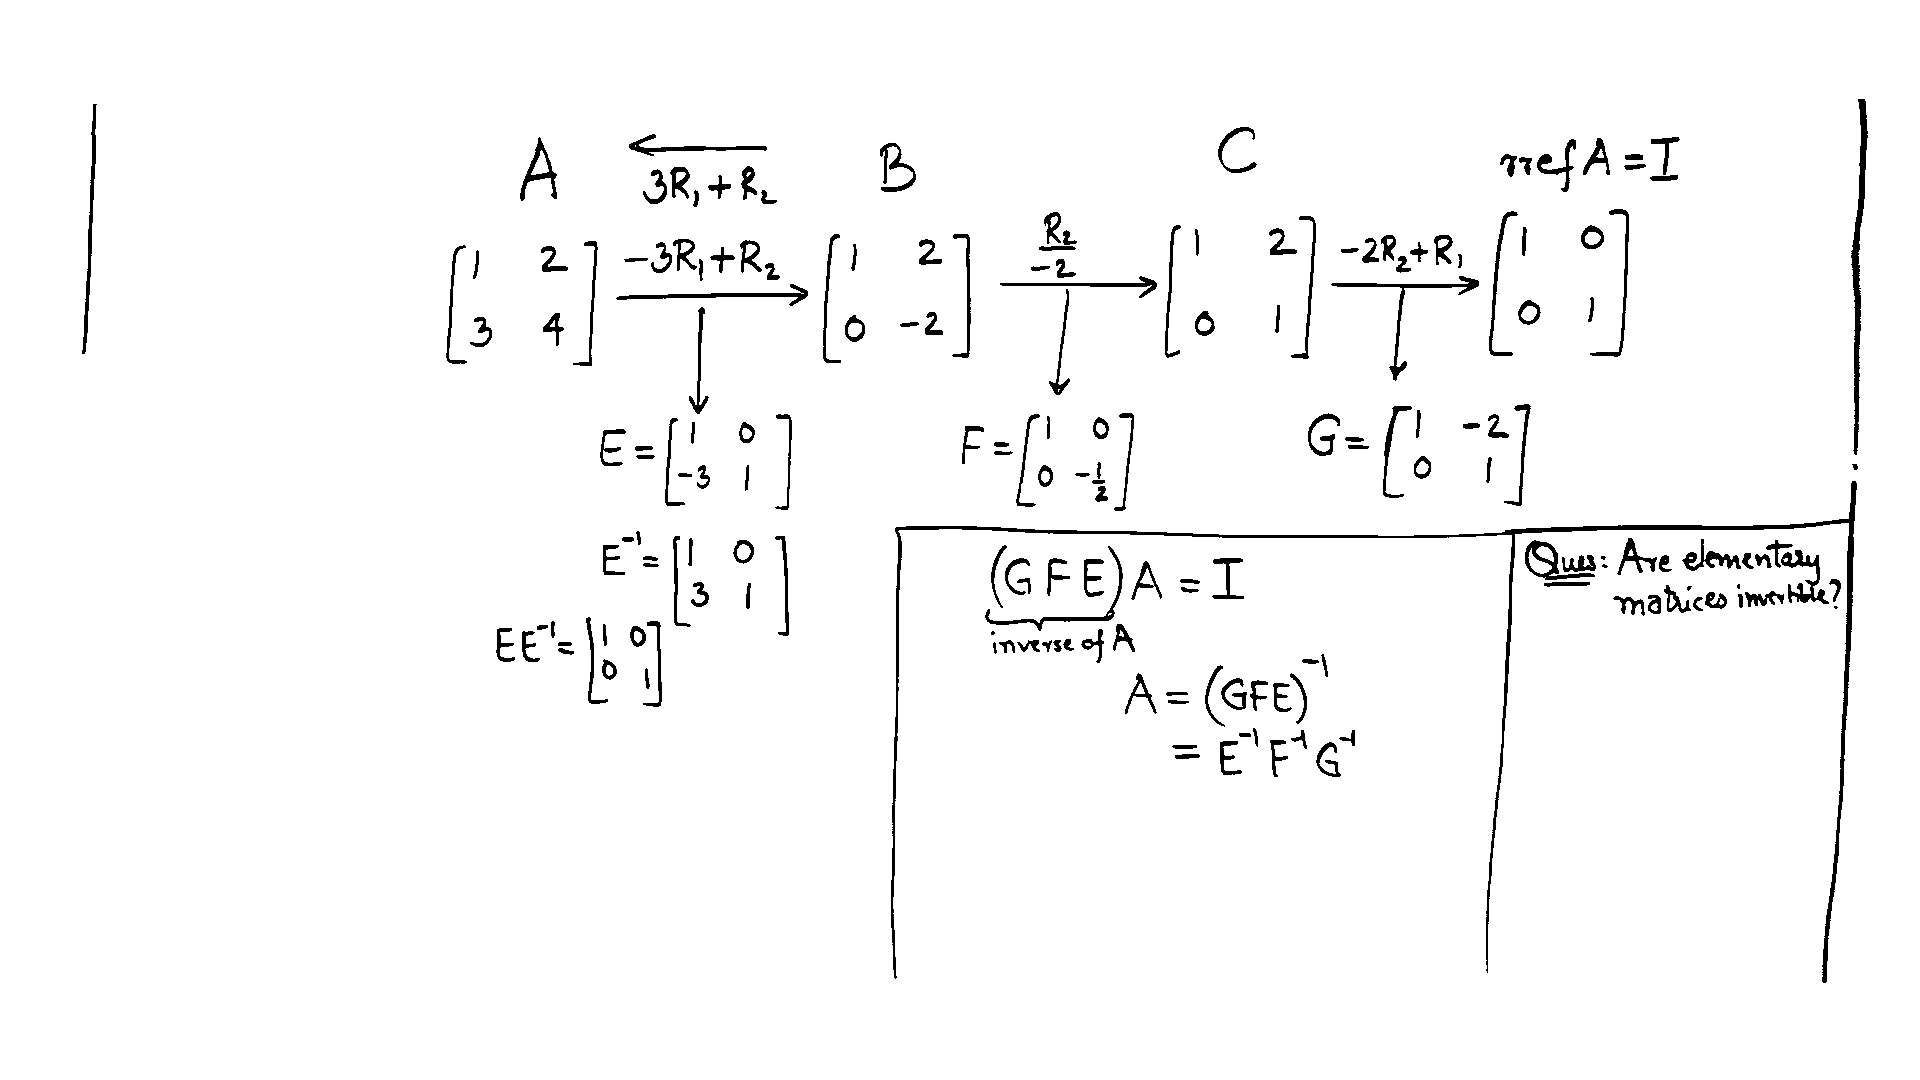 A ← 3R₁ + R₂ B C rref A = I
[1 2; 3 4] −3R₁+R₂ → [1 2; 0 −2] R₂/−2 → [1 2; 0 1] −2R₂+R₁ → [1 0; 0 1]
E = [1 0; −3 1] F = [1 0; 0 −1/2] G = [1 −2; 0 1]
E⁻¹ = [1 0; 3 1]
EE⁻¹ = [1 0; 0 1]
(GFE)A = I
inverse of A
A = (GFE)⁻¹
= E⁻¹F⁻¹G⁻¹
Ques: Are elementary
matrices invertible?